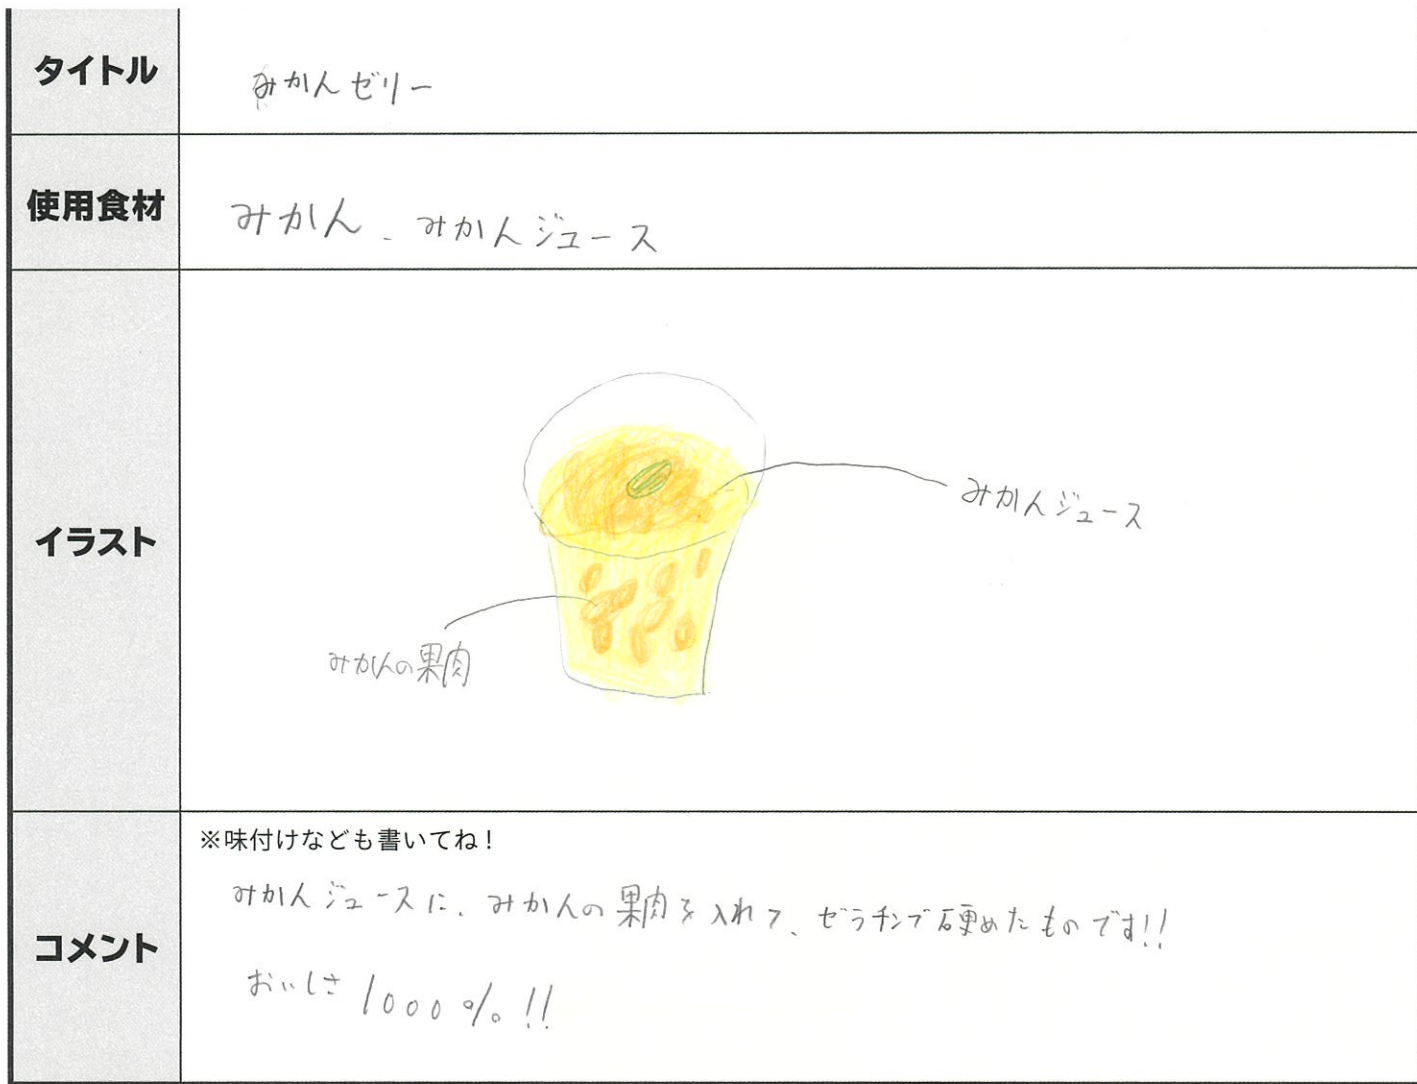 タイトル
みかんゼリー
使用食材
みかん、みかんジュース
イラスト
みかんジュース
みかんの果肉
コメント
※味付けなども書いてね！
みかんジュースに、みかんの果肉を入れて、ゼラチンで硬めたものです!!
おいしさ 1000%!!